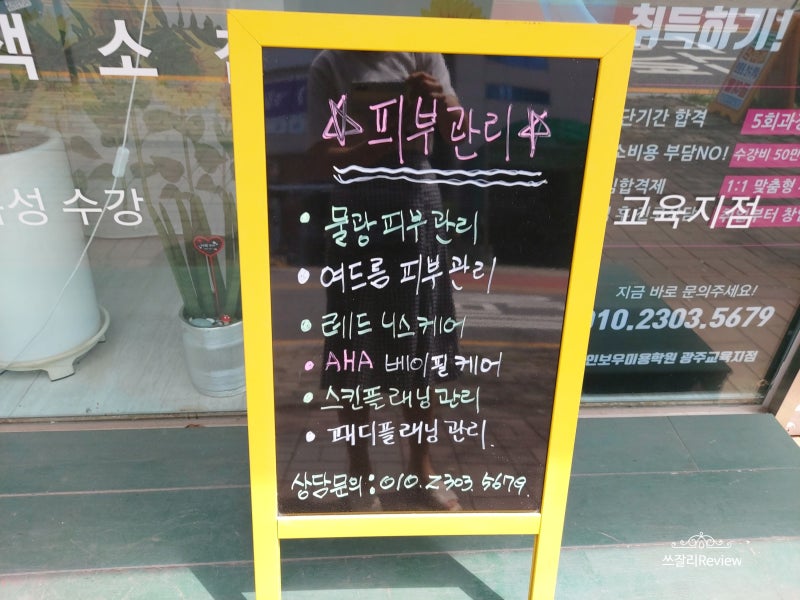 ☆피부관리☆
• 물광 피부관리
• 여드름 피부관리
• 레드니스케어
• AHA 베이필케어
• 스킨플래닝관리
• 패디플래닝관리.
상담문의 : 010. 2303. 5679.
색 소
성 수강
취득하기!
단기간 합격
5회과정
소비용 부담NO!
수강비 50만
합격제
1:1 맞춤형
부터 창업
교육지점
지금 바로 문의주세요!
010.2303.5679
인보우미용학원 광주교육지점
쓰잘리Review